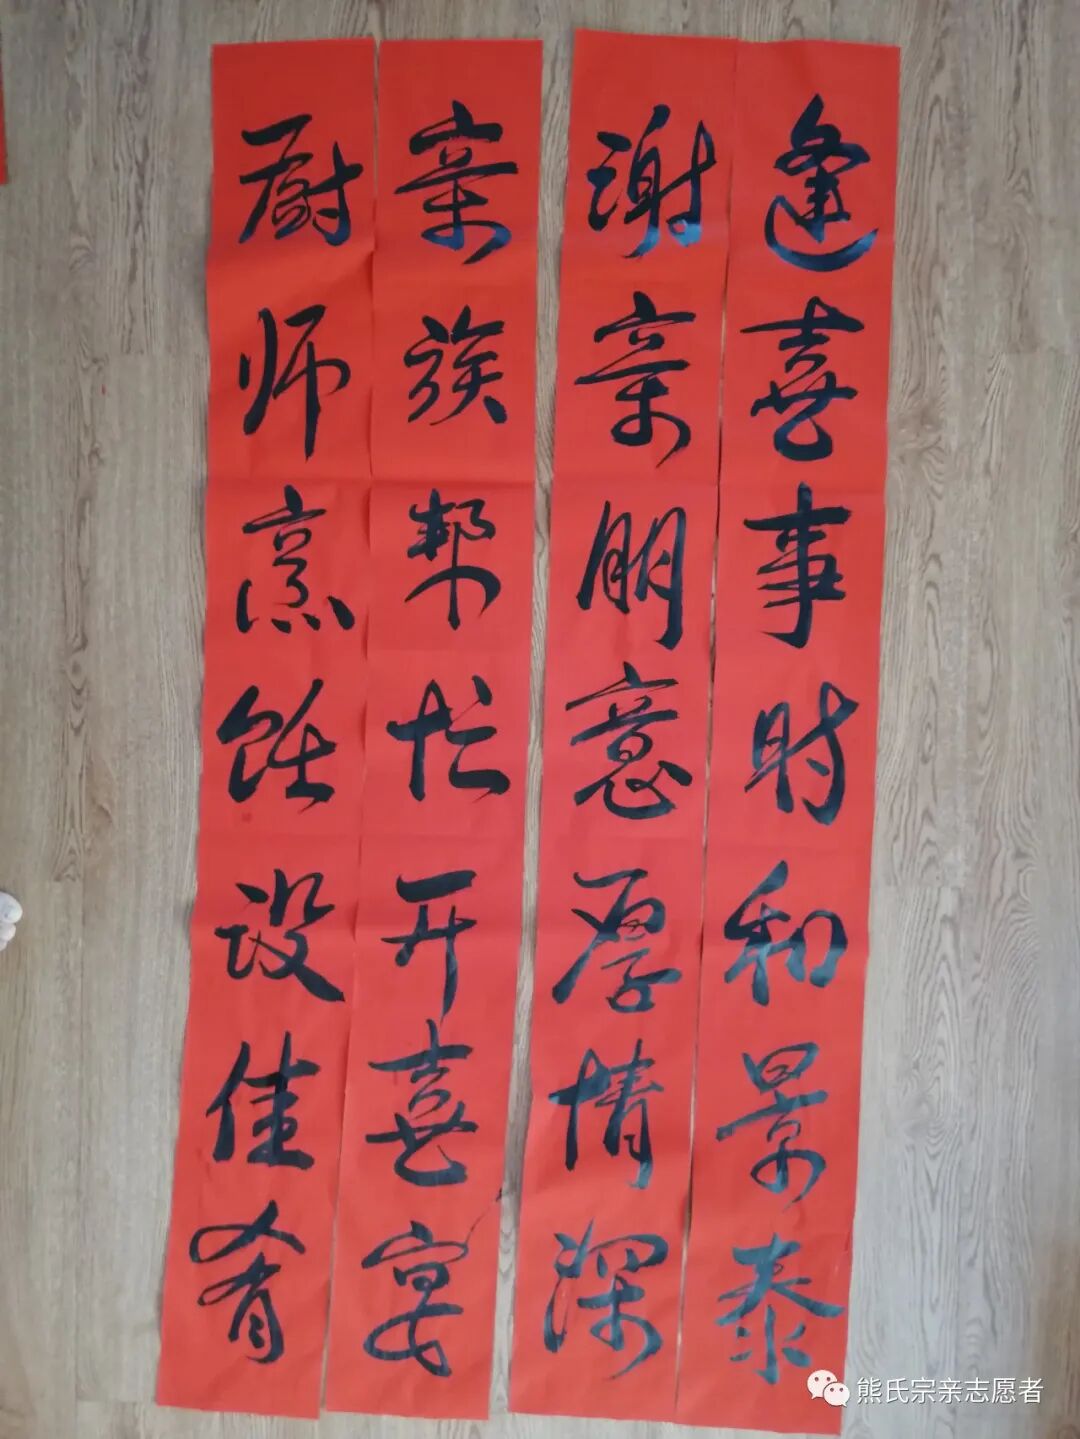 逢喜事时和景泰
谢亲朋意厚情深
亲族帮忙开喜宴
厨师烹饪设佳肴
熊氏宗亲志愿者